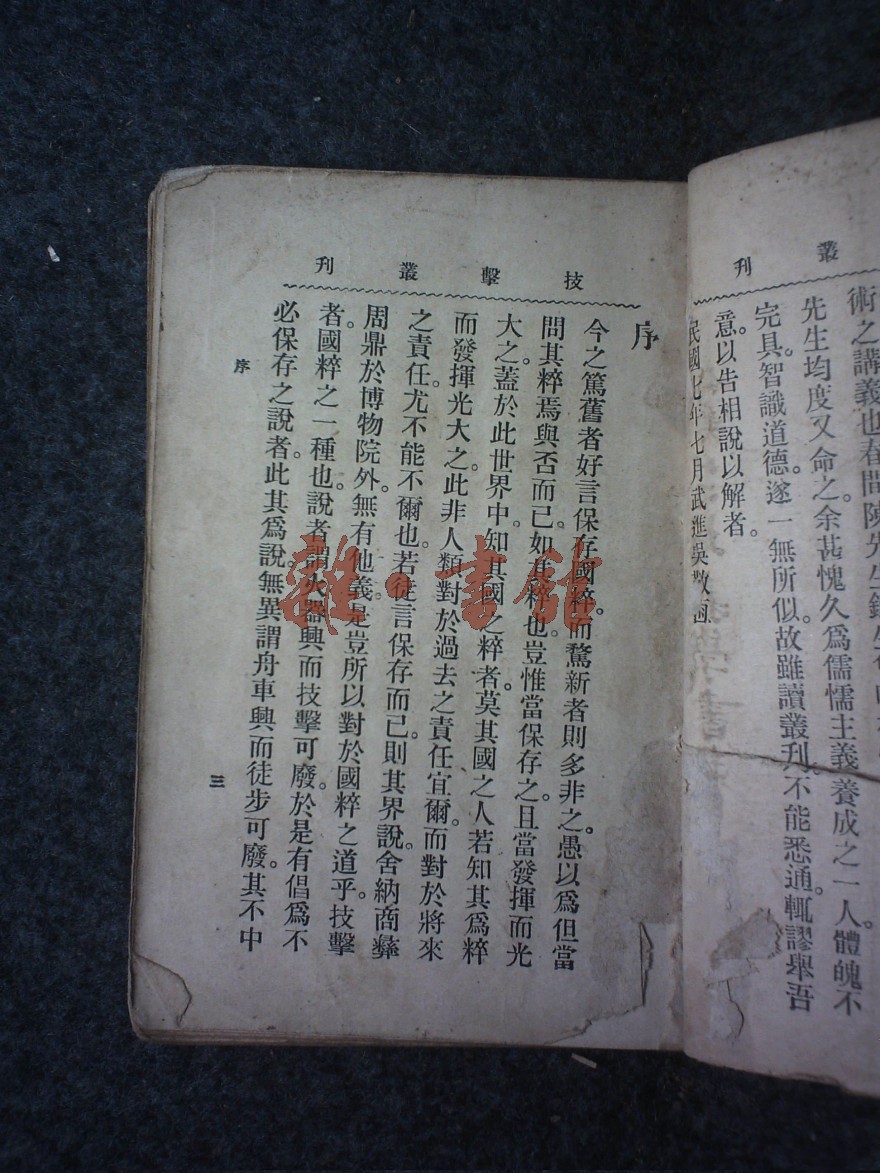 叢刊
術之講義也春間陳先生
先生均度又命之余甚愧久爲儒懦主義養成之一人體魄不
完具。智識道德。遂一無所似。故雖讀叢刊。不能悉通。輒謬舉吾
意。以告相說以解者。
民國七年七月武進吳敬
技擊叢刊
序
今之篤舊者好言保存國粹。而騖新者則多非之。愚以爲但當
問其粹焉與否而已。如其粹也。豈惟當保存之。且當發揮而光
大之。蓋於此世界中。知其國之粹者。莫其國之人若。知其爲粹
而發揮光大之。此非人類對於過去之責任宜爾。而對於將來
之責任。尤不能不爾也。若徒言保存而已。則其界說。舍納商彝
周鼎於博物院外。無有他義。是豈所以對於國粹之道乎。技擊
者。國粹之一種也。說者謂火器興而技擊可廢。於是有倡爲不
必保存之說者。此其爲說。無異謂舟車興而徒步可廢。其不中
序
三
雜·書館